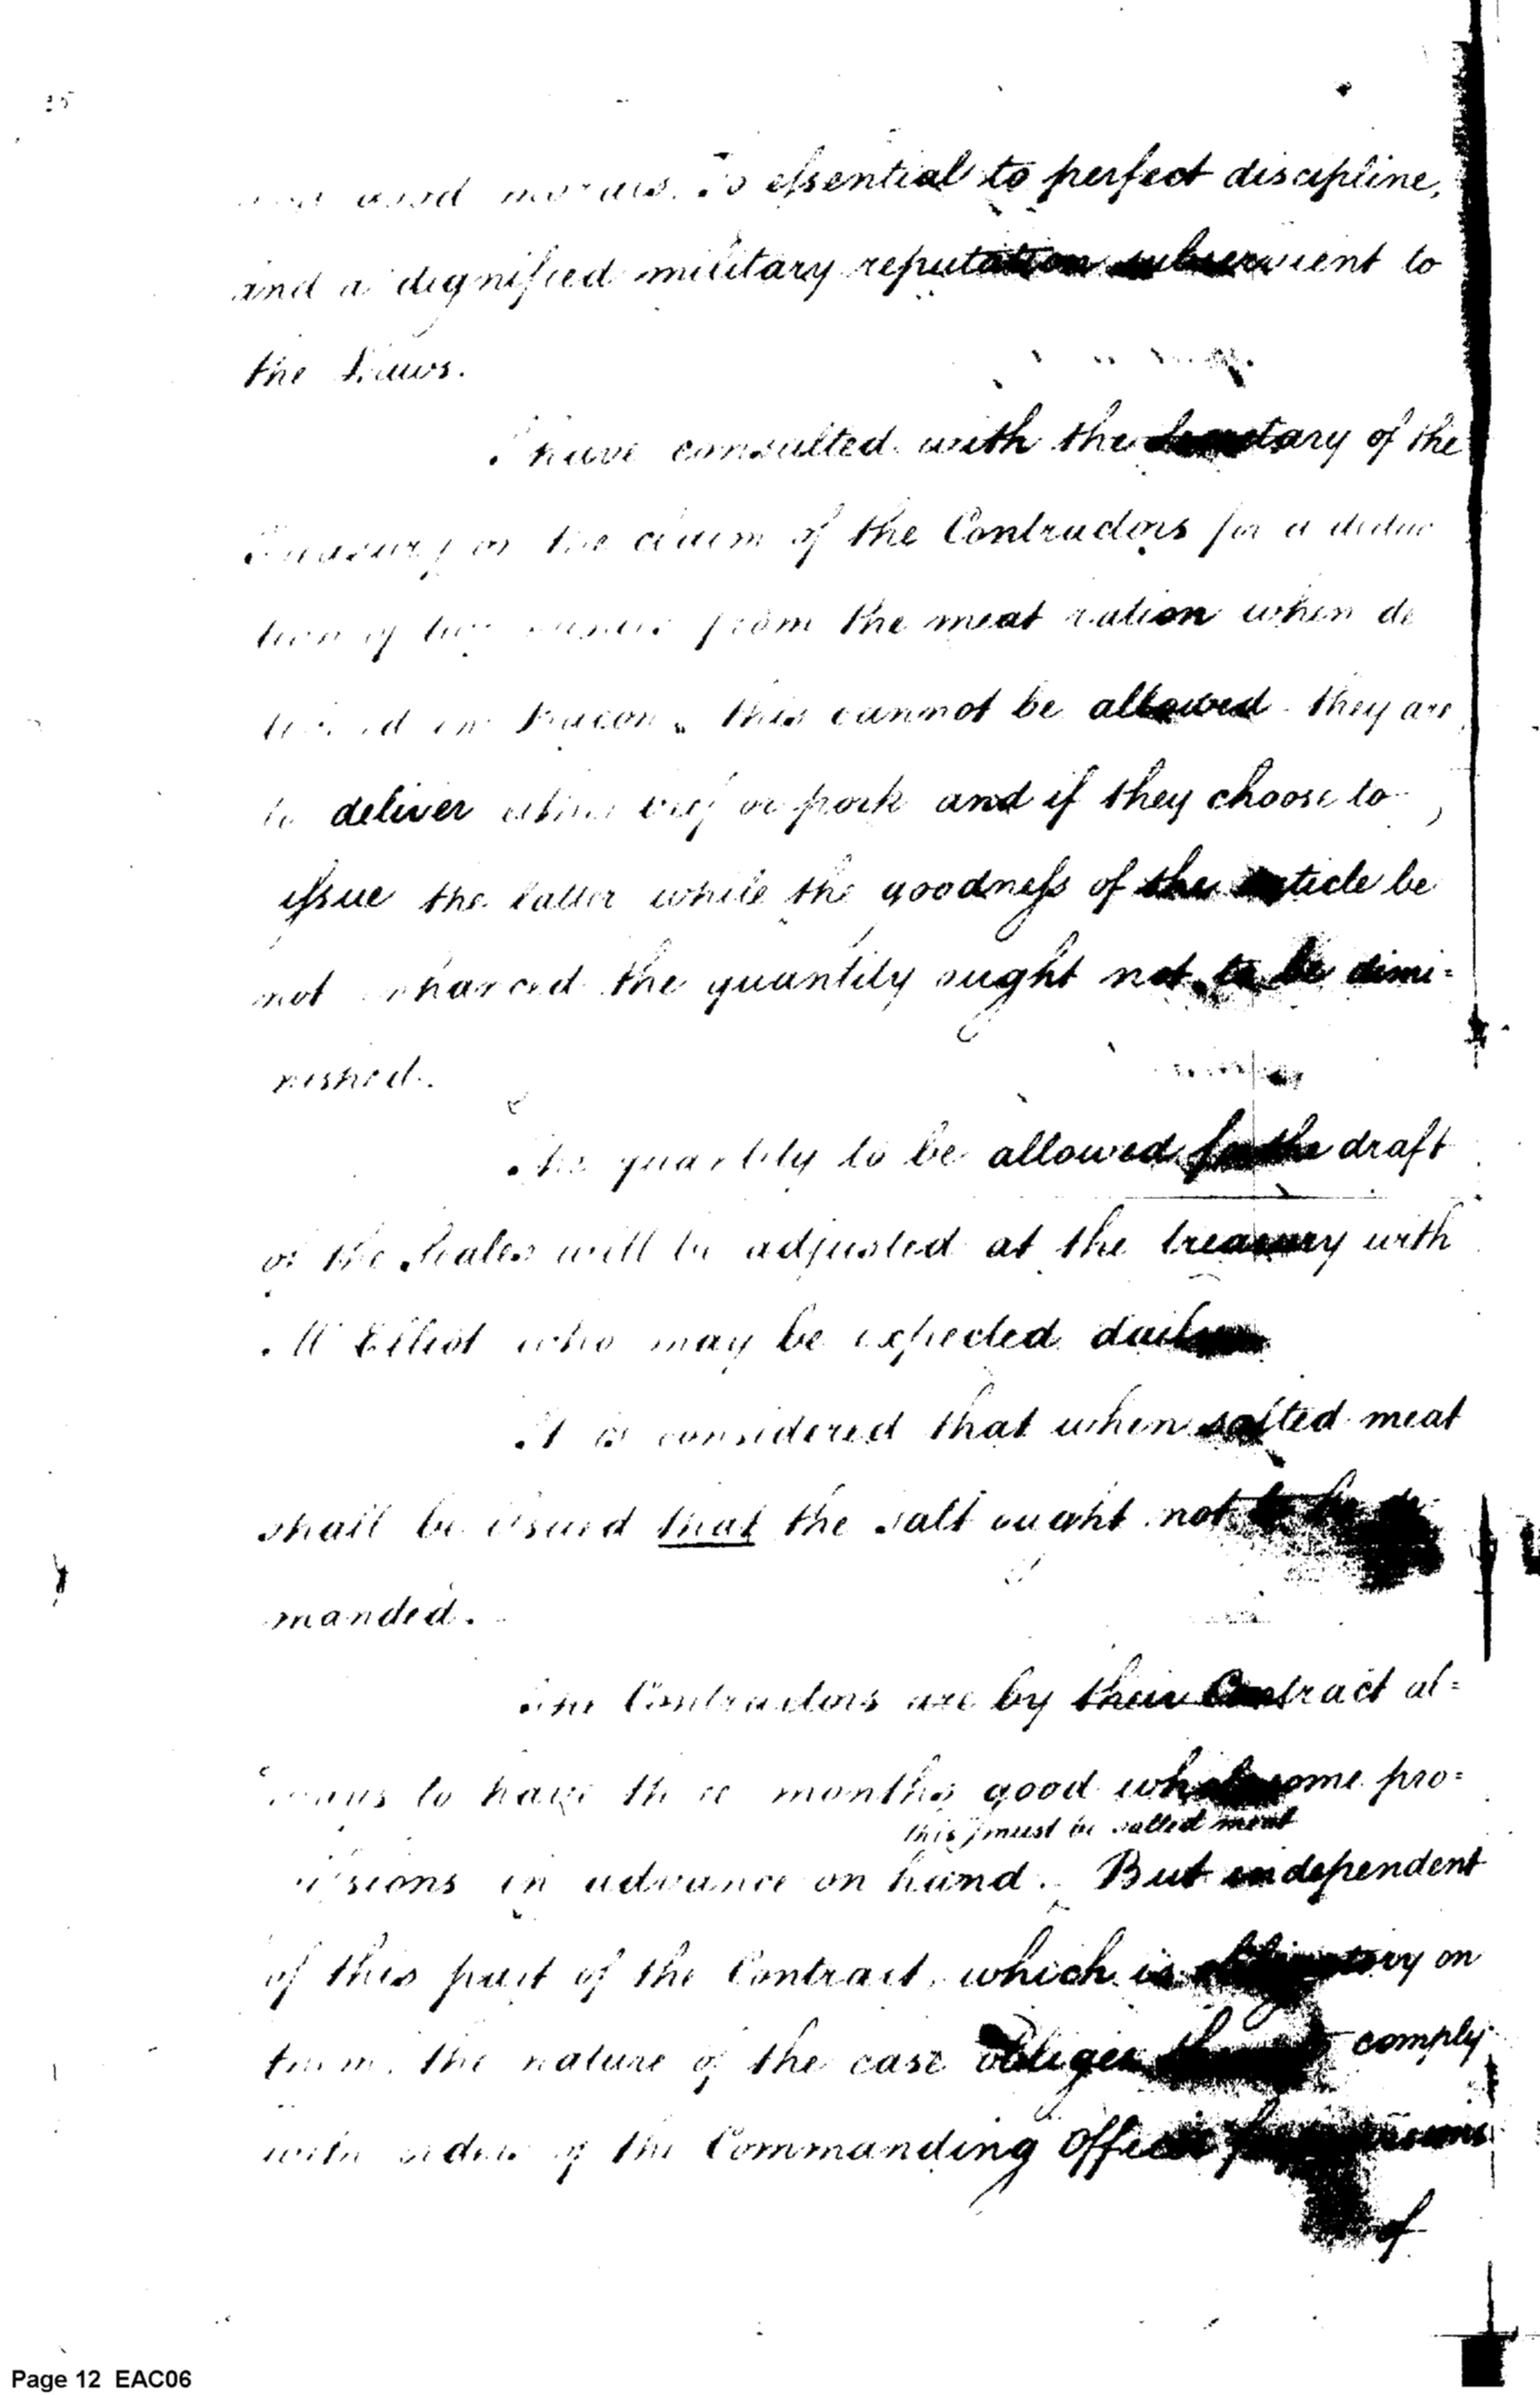 good morals. So essential to perfect discipline,
and a dignified military reputation subservient to
the Laws.
I have consulted with the Secretary of the
Treasury on the claim of the Contractors for a deduc
tion of two ounces from the meat ration when de
livered in bacon. this cannot be allowed. they are
to deliver either beef or pork and if they choose to
issue the latter while the goodness of the article be
not enhanced the quantity ought not to be dimi=
nished.
The quantity to be allowed for the draft
of the Scales will be adjusted at the treasury with
Mr Elliot who may be expected daily
It is considered that when salted meat
shall be issued that the salt ought not to be de
manded.
The Contractors are by their Contract al=
ways to have three months good wholesome pro=
this must be salted meat
visions in advance on hand. But independent
of this part of the Contract, which is obligatory on
them. the nature of the case obliges them to comply
with orders of the Commanding Officer
of
Page 12 EAC06